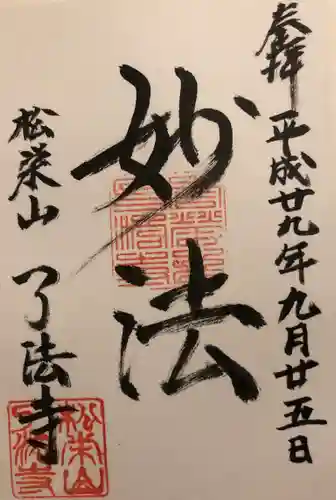 奉拝 平成廿九年九月廿五日
妙法
松栄山 了法寺
松栄山
了法寺